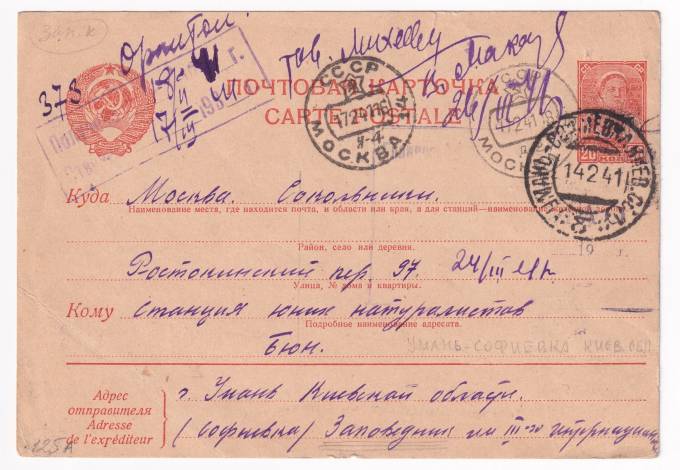 Зап. к
Орнитол.
378
тов. Михееву
В. Макар
ПОЧТОВАЯ КАРТОЧКА
CARTE POSTALE
СССР
17241 16
МОСКВА
СССР
17241
МОСКВА
20
КОП.
УМАНЬ-СОФ
КИЕВ
14241
Куда Москва. Сокольники.
Наименование места, где находится почта, и области или края, а для станций—наименование
19 г.
Район, село или деревня.
Ростокинский пер. 97. 24/III
Улица, № дома и квартиры.
Кому Станция юных натуралистов
Подробное наименование адресата.
Бюн.
УМАНЬ-СОФИЕВКА КИЕВ.ОБЛ
Адрес отправителя
Adresse de l'expéditeur
г. Умань Киевской области.
(Софиевка) Заповедник им III-го интернационала
125А